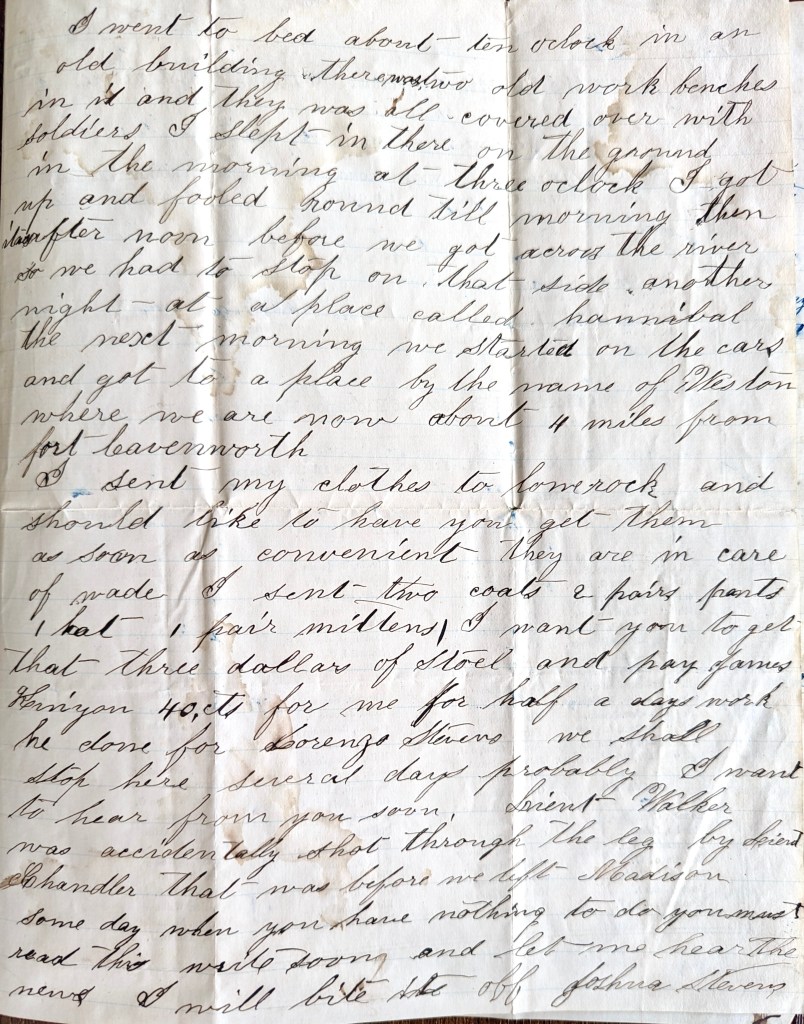 I went to bed about ten oclock in an
old building there was two old work benches
in it and they was all covered over with
soldiers I slept in there on the ground
in the morning at three oclock I got
up and fooled round till morning then
it was after noon before we got across the river
so we had to stop on that side another
night at a place called hannibal
the next morning we started on the cars
and got to a place by the name of Weston
where we are now about 4 miles from
fort Leavenworth
I sent my clothes to lonerock and
should like to have you get them
as soon as convenient they are in care
of wade I sent two coats 2 pairs pants
1 hat 1 pair mittens, I want you to get
that three dollars of Stoel and pay James
Kinyon 40, cts for me for half a days work
he done for Lorenzo Stevens we shall
stop here several days probably I want
to hear from you soon. Lieut Walker
was accidentally shot through the leg by Lieut
Chandler that was before we left Madison
some day when you have nothing to do you must
read this write soon and let me hear the
news I will bite it off Joshua Stevens